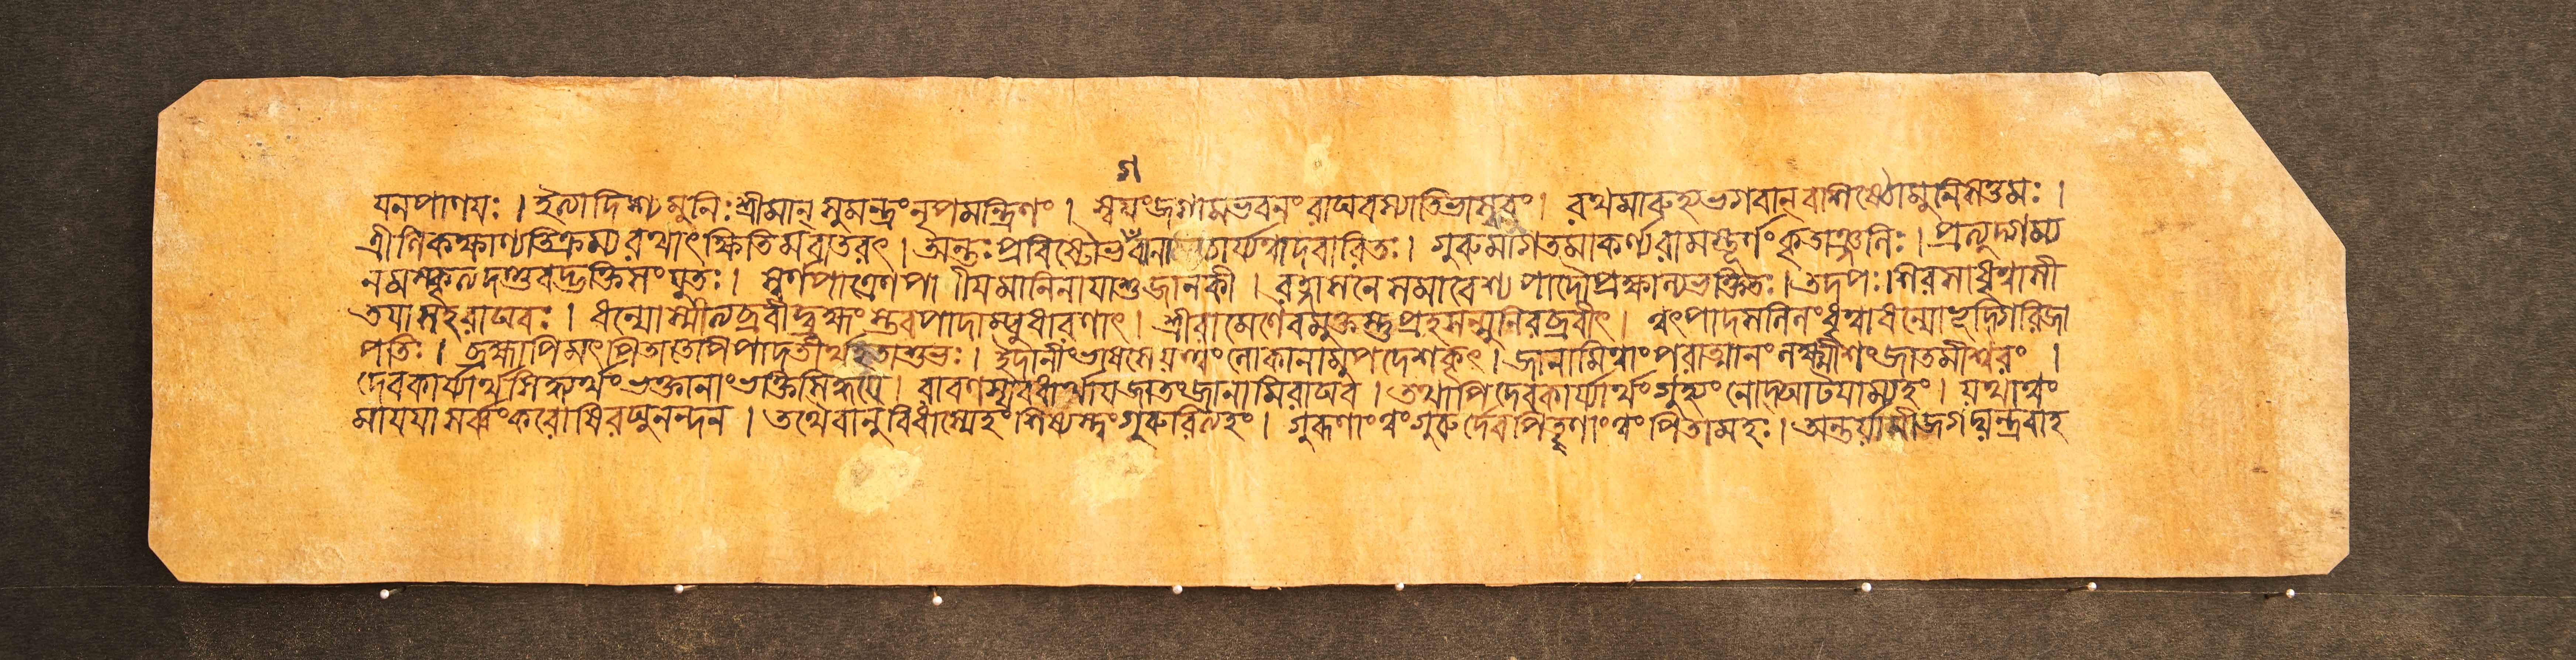 গ
যনপাণযঃ । ইত্যাদিশ্য মুনিঃ শ্রীমান্ সুমন্ত্রং নৃপমন্ত্রিণং । স্বযংজগাম ভবনং রাঘবস্যাতিভাস্বরং । রথমারুহ্য ভগবান্ বাশিষ্ঠো মুনিসত্তমঃ ।
ত্রীণি কক্ষাণ্যতিক্রম্য রথাৎ ক্ষিতিমবাতরৎ । অন্তঃ প্রবিষ্টো চার্য্যত্বাদবারিতঃ । গুরুমাগতমাকর্ণ্য রামস্তূর্ণং কৃতাঞ্জলিঃ । প্রত্যুদ্গম্য
নমস্কৃত্য দণ্ডবদ্ভক্তিসংযুতঃ । স্বর্ণপাত্রেণ পা ীযমানিনাযাশু জানকী । রত্নাসনে সমাবেশ্য পাদৌ প্রক্ষাল্য ভক্তিতঃ । তদপঃ শিরসা ধৃত্বা সী
তযা সহ রাঘবঃ । ধন্যোস্মীত্যব্রবীদ্ তব পাদাম্বুধারণাৎ । শ্রীরামেণৈবমুক্তস্তু প্রহসন্মুনিরব্রবীৎ । ত্বৎপাদসলিলং ধৃত্বা ধন্যোভূদ্গিরিজা
পতিঃ । ব্রহ্মাপি মৎপিতা তেপি পাদতীর্থহতাশুভঃ । ইদানীং ভাষসে যত্ত্বং লোকানামুপদেশকৃৎ । জানামি ত্বাং পরাত্মানং লক্ষ্মীশং জাতমীশ্বরং ।
দেবকার্য্যার্থসিদ্ধ্যর্থং ভক্তানাং ভক্তিসিদ্ধযে । রাবণস্য বধার্থায জাতং জানামি রাঘব । তথাপি দেবকার্য্যার্থং গুহ্যং নোদ্ঘাটযাম্যহং । যথা ত্বং
মাযযা সর্ব্বং করোষি রঘুনন্দন । তথৈবানুবিধাস্যেহং শিষ্যস্ত্বং গুরুরিত্যহং । গুরূণাং ত্বং গুরুর্দেব পিতৃণাং ত্বং পিতামহঃ । অন্তর্য্যামী জগদ্যন্ত্রবাহ